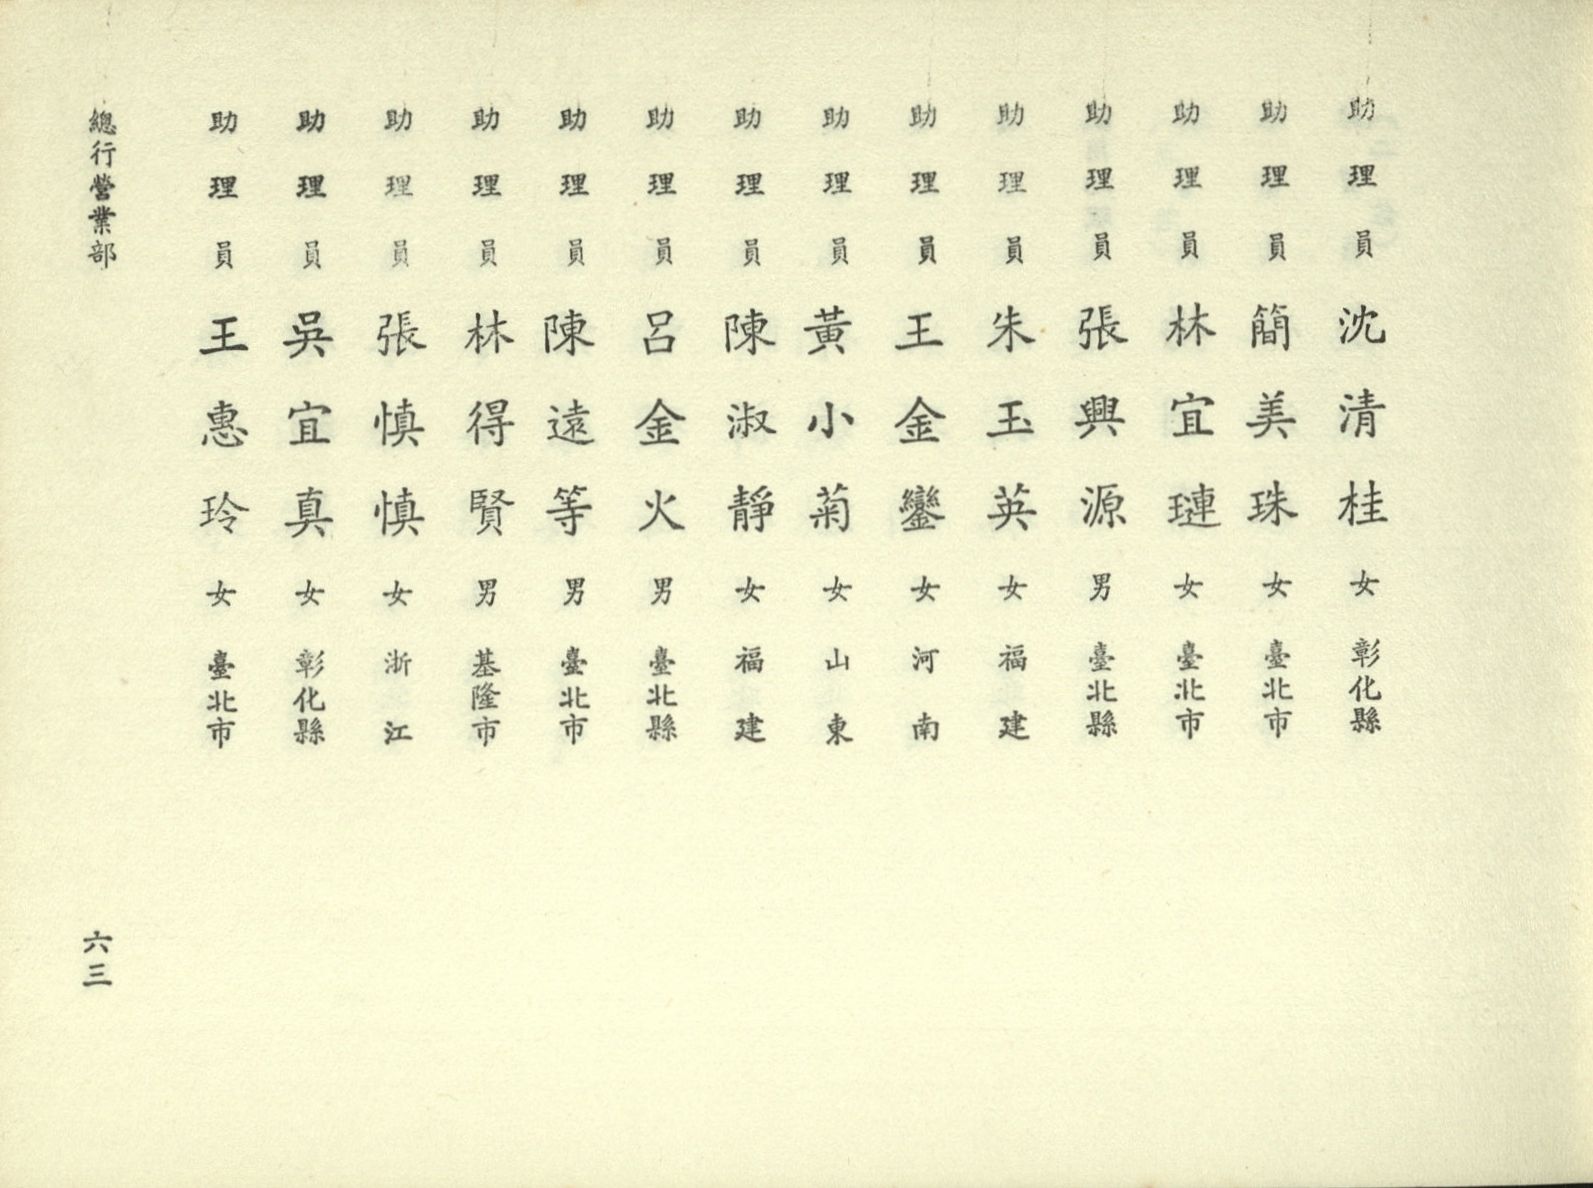 助理員 沈清桂 女 彰化縣
助理員 簡美珠 女 臺北市
助理員 林宜璉 女 臺北市
助理員 張興源 男 臺北縣
助理員 朱玉英 女 福建
助理員 王金鑾 女 河南
助理員 黃小菊 女 山東
助理員 陳淑靜 女 福建
助理員 呂金火 男 臺北縣
助理員 陳遠等 男 臺北市
助理員 林得賢 男 基隆市
助理員 張慎慎 女 浙江
助理員 吳宜真 女 彰化縣
助理員 王惠玲 女 臺北市
總行營業部 六三